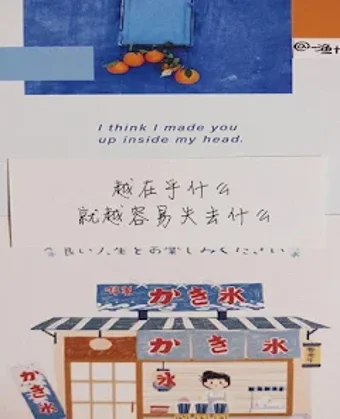 @一渔
I think I made you
up inside my head.
越在乎什么
就越容易失去什么
良い人生をお楽しみください
かき氷
かき氷
氷
かき氷